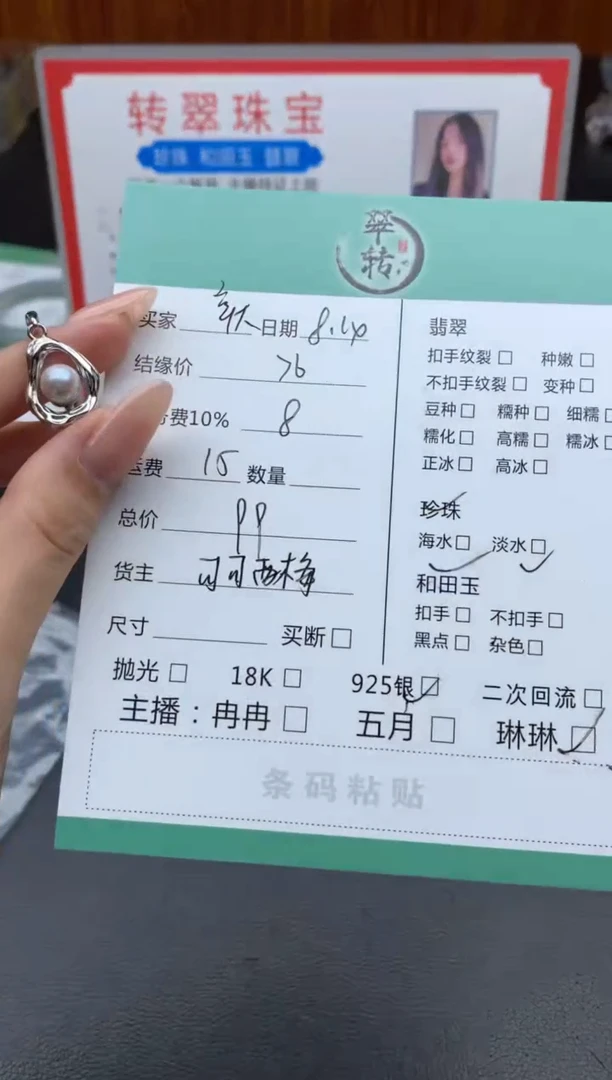 转翠珠宝
珍珠 和田玉 翡翠
翠
转
买家 日期 8.20
结缘价 76
务费10% 8
运费 15 数量
总价 99
货主 可可西梅
尺寸 买断
翡翠
扣手纹裂 种嫩
不扣手纹裂 变种
豆种 糯种 细糯
糯化 高糯 糯冰
正冰 高冰
珍珠
海水 淡水
和田玉
扣手 不扣手
黑点 杂色
抛光 18K 925银 二次回流
主播：冉冉 五月 琳琳
条码粘贴